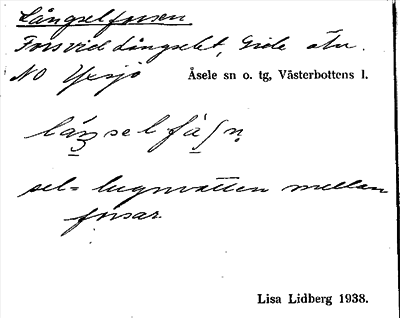 Långselforsen
Fors vid Långselet, Gide älv.
NO Yxsjö Åsele sn o. tg, Västerbottens l.
sel = lugnvatten mellan
forsar.
Lisa Lidberg 1938.